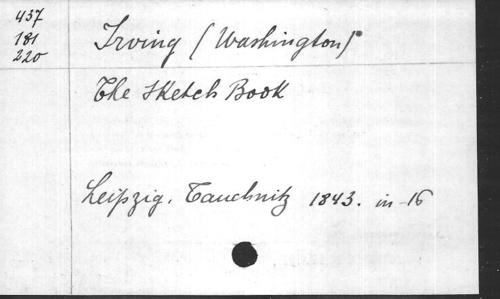 437
181
220
Irving (Washington)
The Sketch Book
Leipzig. Tauchnitz 1843. in-16